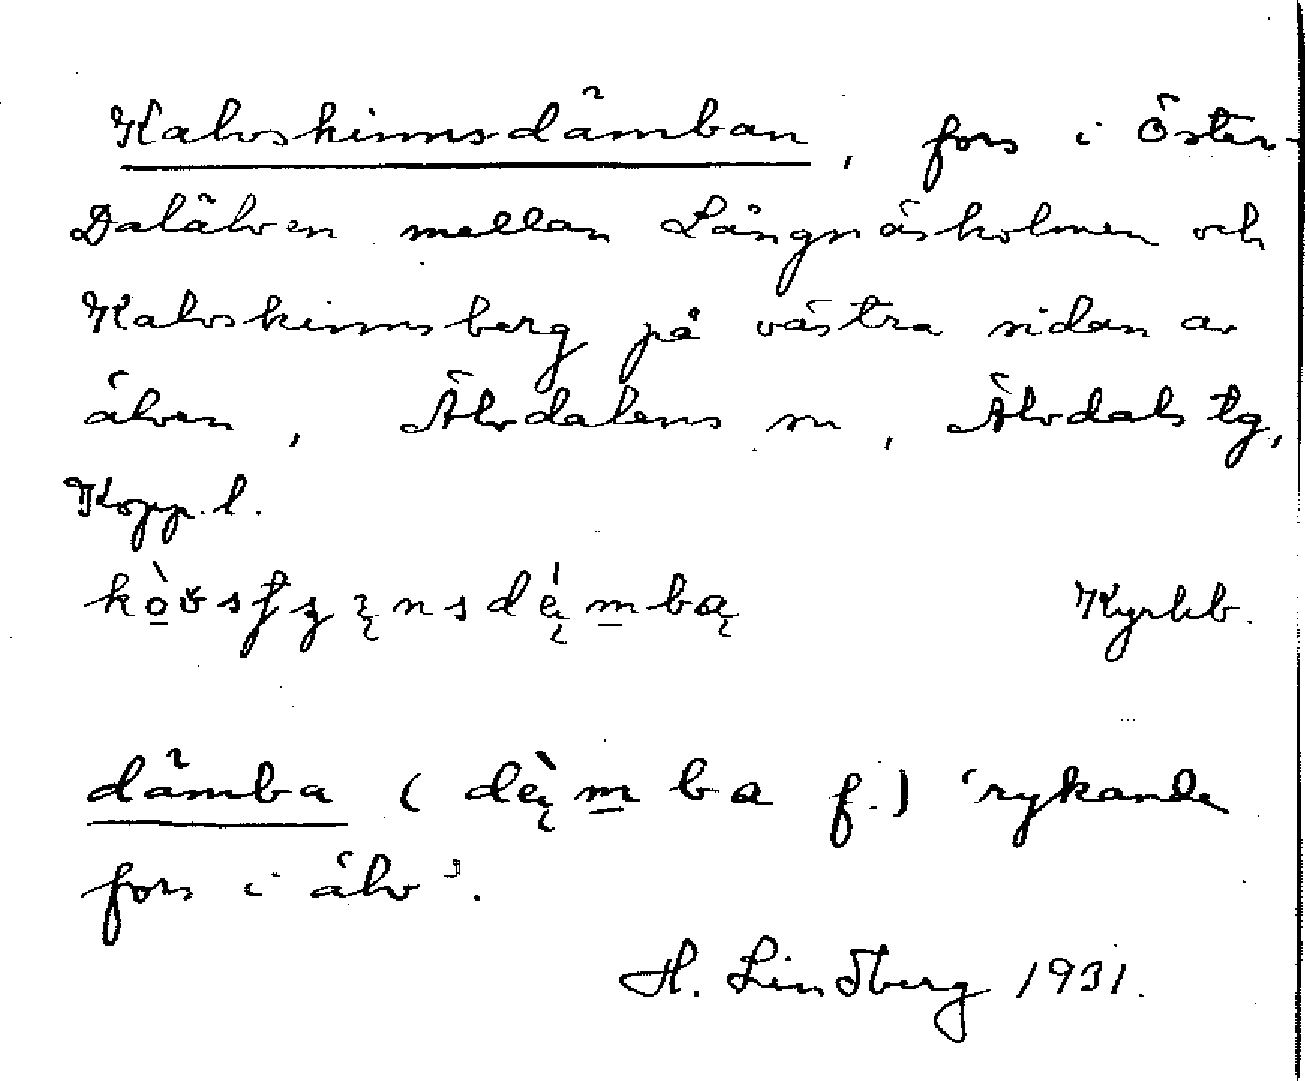 Kalvskinnsdämban, fors i Öster-
Dalälven mellan Långnäsholmen och
Kalvskinnsberg på västra sidan av
älven, Älvdalens sn, Älvdals tg,
Kopp. l.
Kyrkb.
dämba (dè̜m̲ba f.) 'rykande
fors i älv'.
H. Lindberg 1931.